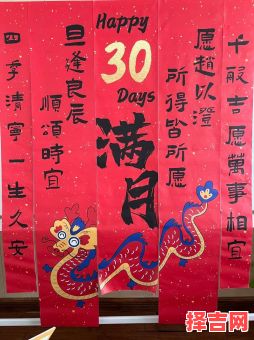 Happy
30
Days
满月
千般吉愿萬事相宜
愿趙以澄
所得皆所愿
旦逢良辰
順頌時宜
四季清寧一生久安
择吉网